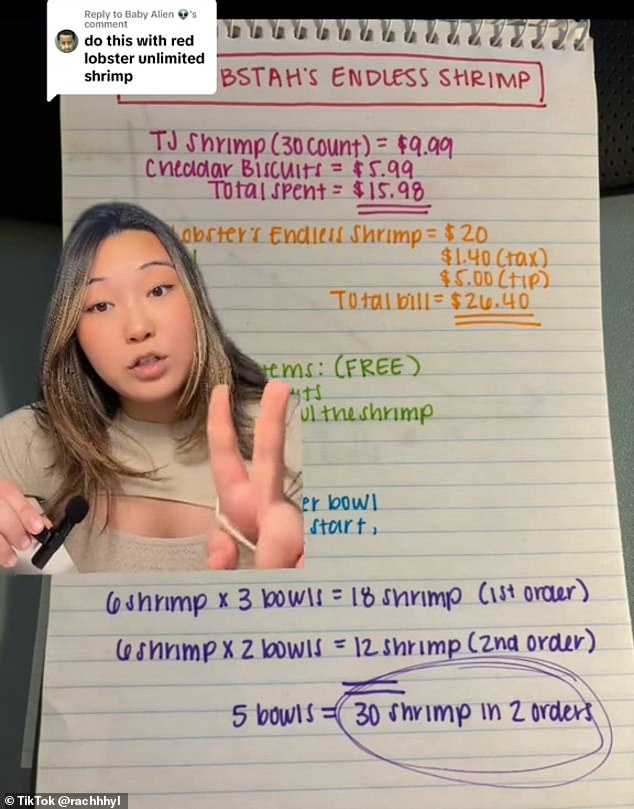 Reply to Baby Alien 👽's
comment
do this with red
lobster unlimited
shrimp
BSTAH'S ENDLESS SHRIMP
TJ Shrimp (30 count) = $9.99
Cheddar Biscuits = $5.99
Total spent = $15.98
lobster's Endless Shrimp = $20
$1.40 (tax)
$5.00 (tip)
Total bill = $26.40
tems: (FREE)
ul the shrimp
er bowl
start,
6 shrimp x 3 bowls = 18 shrimp (1st order)
6 shrimp x 2 bowls = 12 shrimp (2nd order)
5 bowls = 30 shrimp in 2 orders
TikTok @rachhhyl